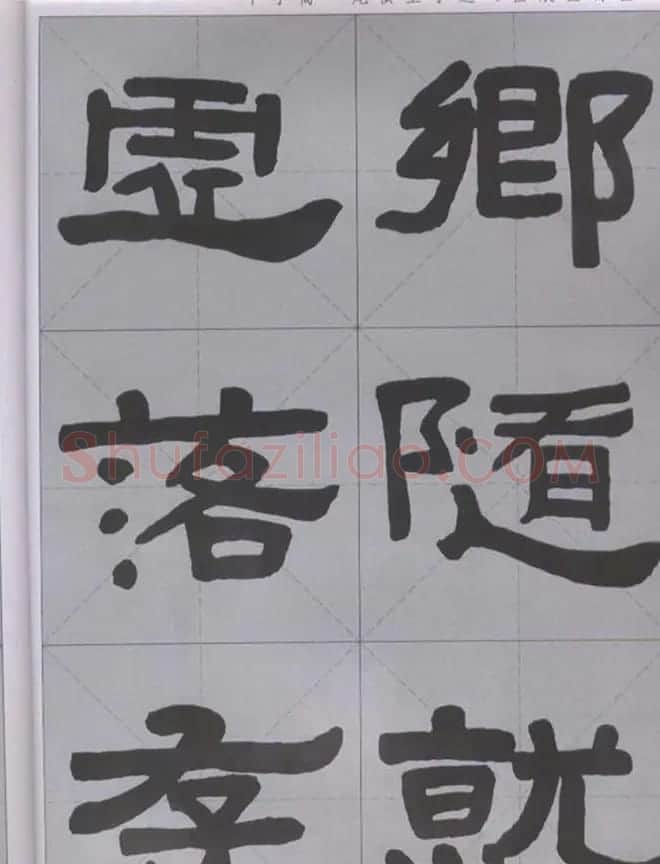 鄉隨就
虛落存
Shufaziliao.COM